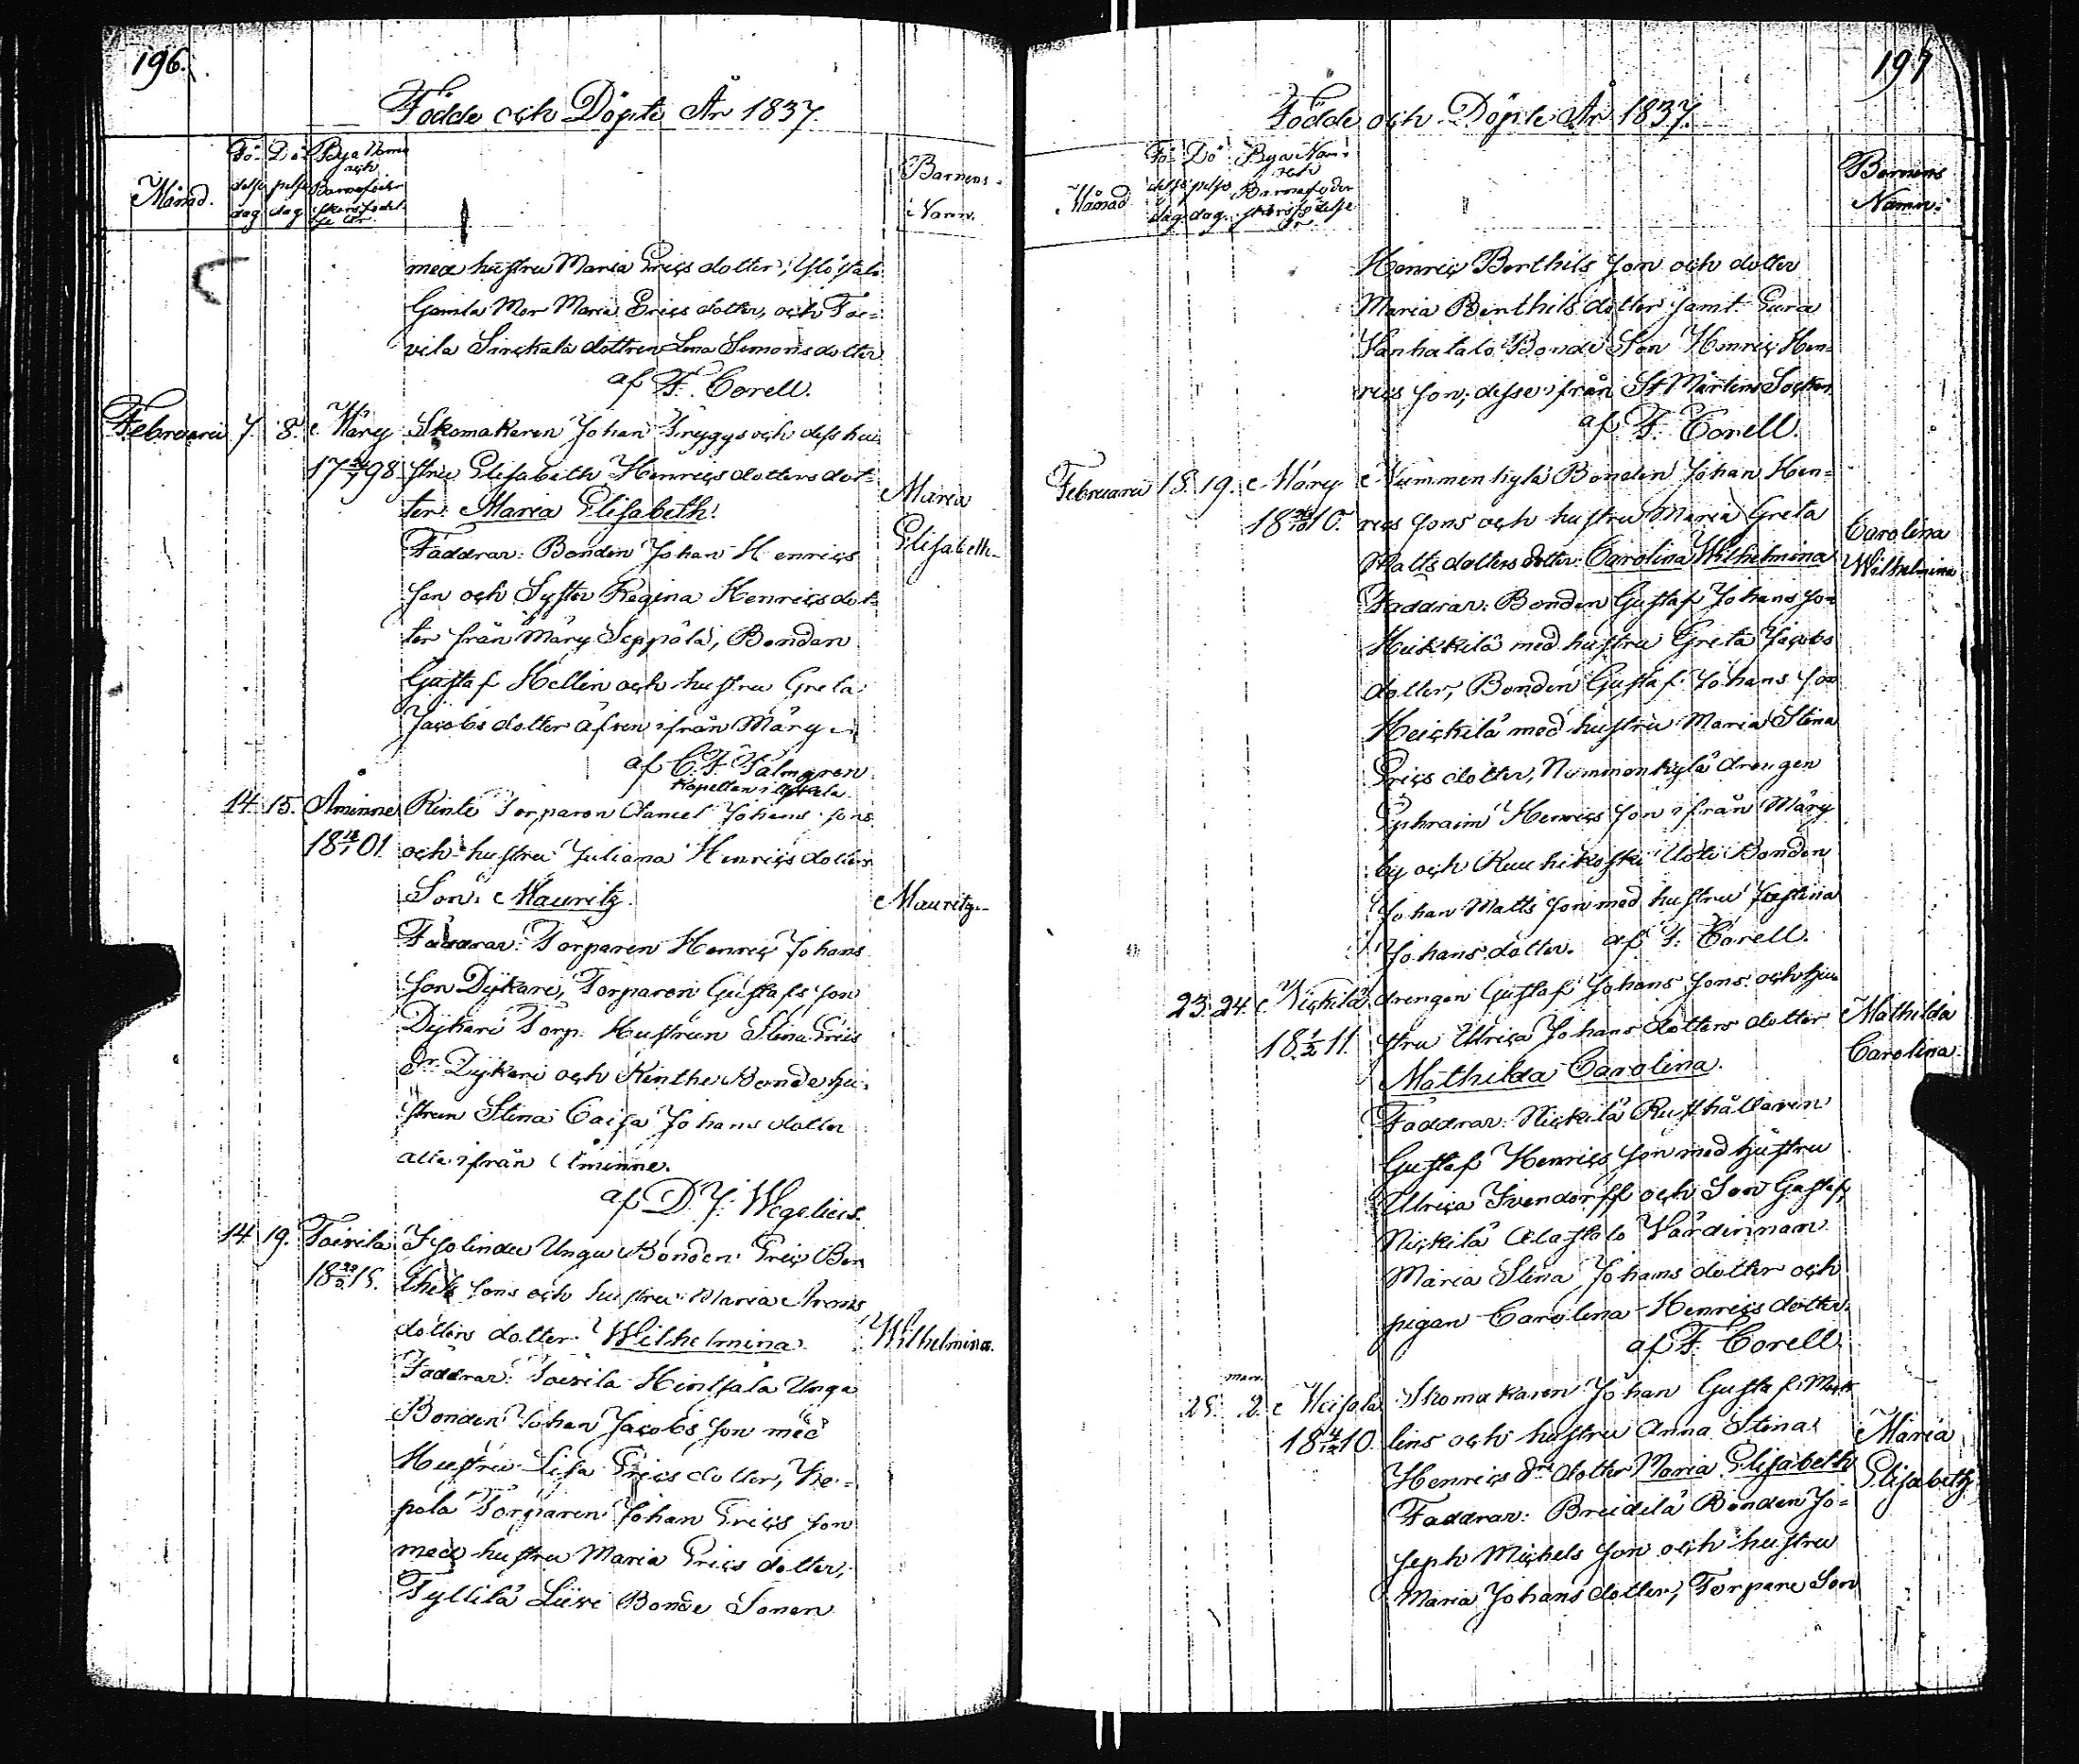 196.
Födde och Döpte År 1837.
Månad.
Fö-
delse
dag
Dö-
pelse
dag
Bya Namn
och
Barnaföder
skors födel
se år.
Barnens
Namn.
med hustru Maria Ericsdotter, Ylöstalo
Gamla Mor Maria Ericsdotter, och Toi-
vila Sirckala dottren Lena Simonsdotter
af F. Corell.
Februarii 7. 8. Märy Skomakaren Johan Tryggs och dess hu-
17 98 stru Elisabeth Henricsdotters dot-
ter: Maria Elisabeth.
Maria
Elisabeth
Faddrar: Bonden Johan Henrics
son och Syster Regina Henricsdot-
ter från Märy Seppälä, Bonden
Gustaf Hellen och hustru Greta
Jacobsdotter äfven ifrån Märy
af C. F. Palmgren
Kapellan i
14. 15. Åminne Rinte Torparen Daniel Johans sons
18 01. och hustru Juliana Henrics dotters
Son: Mauritz.
Mauritz.
Faddrar: Torparen Henric Johans
son Dykare, Torparen Gustafs son
Dykari Torp. Hustrun Stina Erics
dr Dykari och Rinthe Bondehu-
strun Stina Caisa Johans dotter
alla ifrån Åminne.
af D. J. Wegelius.
14. 19. Toivila Isolindu Unga Bonden Eric Ber
18 15. thels sons och hustru Maria Arons
dotters dotter Wilhelmina.
Wilhelmina.
Faddrar: Toivila Hintsala Unga
Bonden Johan Jacobs son med
Hustru Lisa Ericsdotter, Ke-
pola Torparen Johan Erics son
med hustru Maria Ericsdotter,
Tyllilä Bonde Sonen
197
Födde och Döpte År 1837.
Månad
Fö-
delse
dag
Dö-
pelse
dag.
Bya Namn
och
Barnaföder
skors födelse
år.
Barnens
Namn.
Henric Berthils son och dotter
Maria Berthils dotter samt Eura
Vanhatalo Bonde Son Henric Hen-
rics son, desse ifrån St Mårtens Socken
af F. Corell.
Februarii 18. 19. Märy Nummenkylä Bonden Johan Hen-
18 10. rics sons och hustru Maria Greta
Matts dotters dotter: Carolina Wilhelmina
Carolina
Wilhelmina
Faddrar: Bonden Gustaf Johans son
Heikkilä med hustru Greta Jacobs
dotter, Bonden Gustaf Johans son
Heickilä med hustru Maria Stina
Erics dotter, Nummenkylä drengen
Ephraim Henrics son ifrån Märy
by och Kuuhikoski Uoti Bonden
Johan Matts son med hustru Justina
Johansdotter. af F. Corell.
23. 24. Nickilä drengen Gustaf Johans sons och hu-
18 1/2 11. stru Ulrica Johans dotters dotter
Mathilda Carolina.
Mathilda
Carolina.
Faddrar: Nickilä Rusthållaren
Gustaf Henrics son med hustru
Ulrica Ivendorff och Son Gustaf,
Nickilä Alastalo Värdinnan
Maria Stina Johans dotter och
pigan Carolina Henrics dotter.
af F. Corell.
mars.
25. 2. Skomakaren Johan Gustaf Meck
18 10. lins och hustru Anna Stina
Henrics drs dotter Maria Elisabeth
Maria
Elisabeth
Faddrar: Breidilä Bonden Jo-
seph Michels son och hustru
Maria Johans dotter, Torpare Son